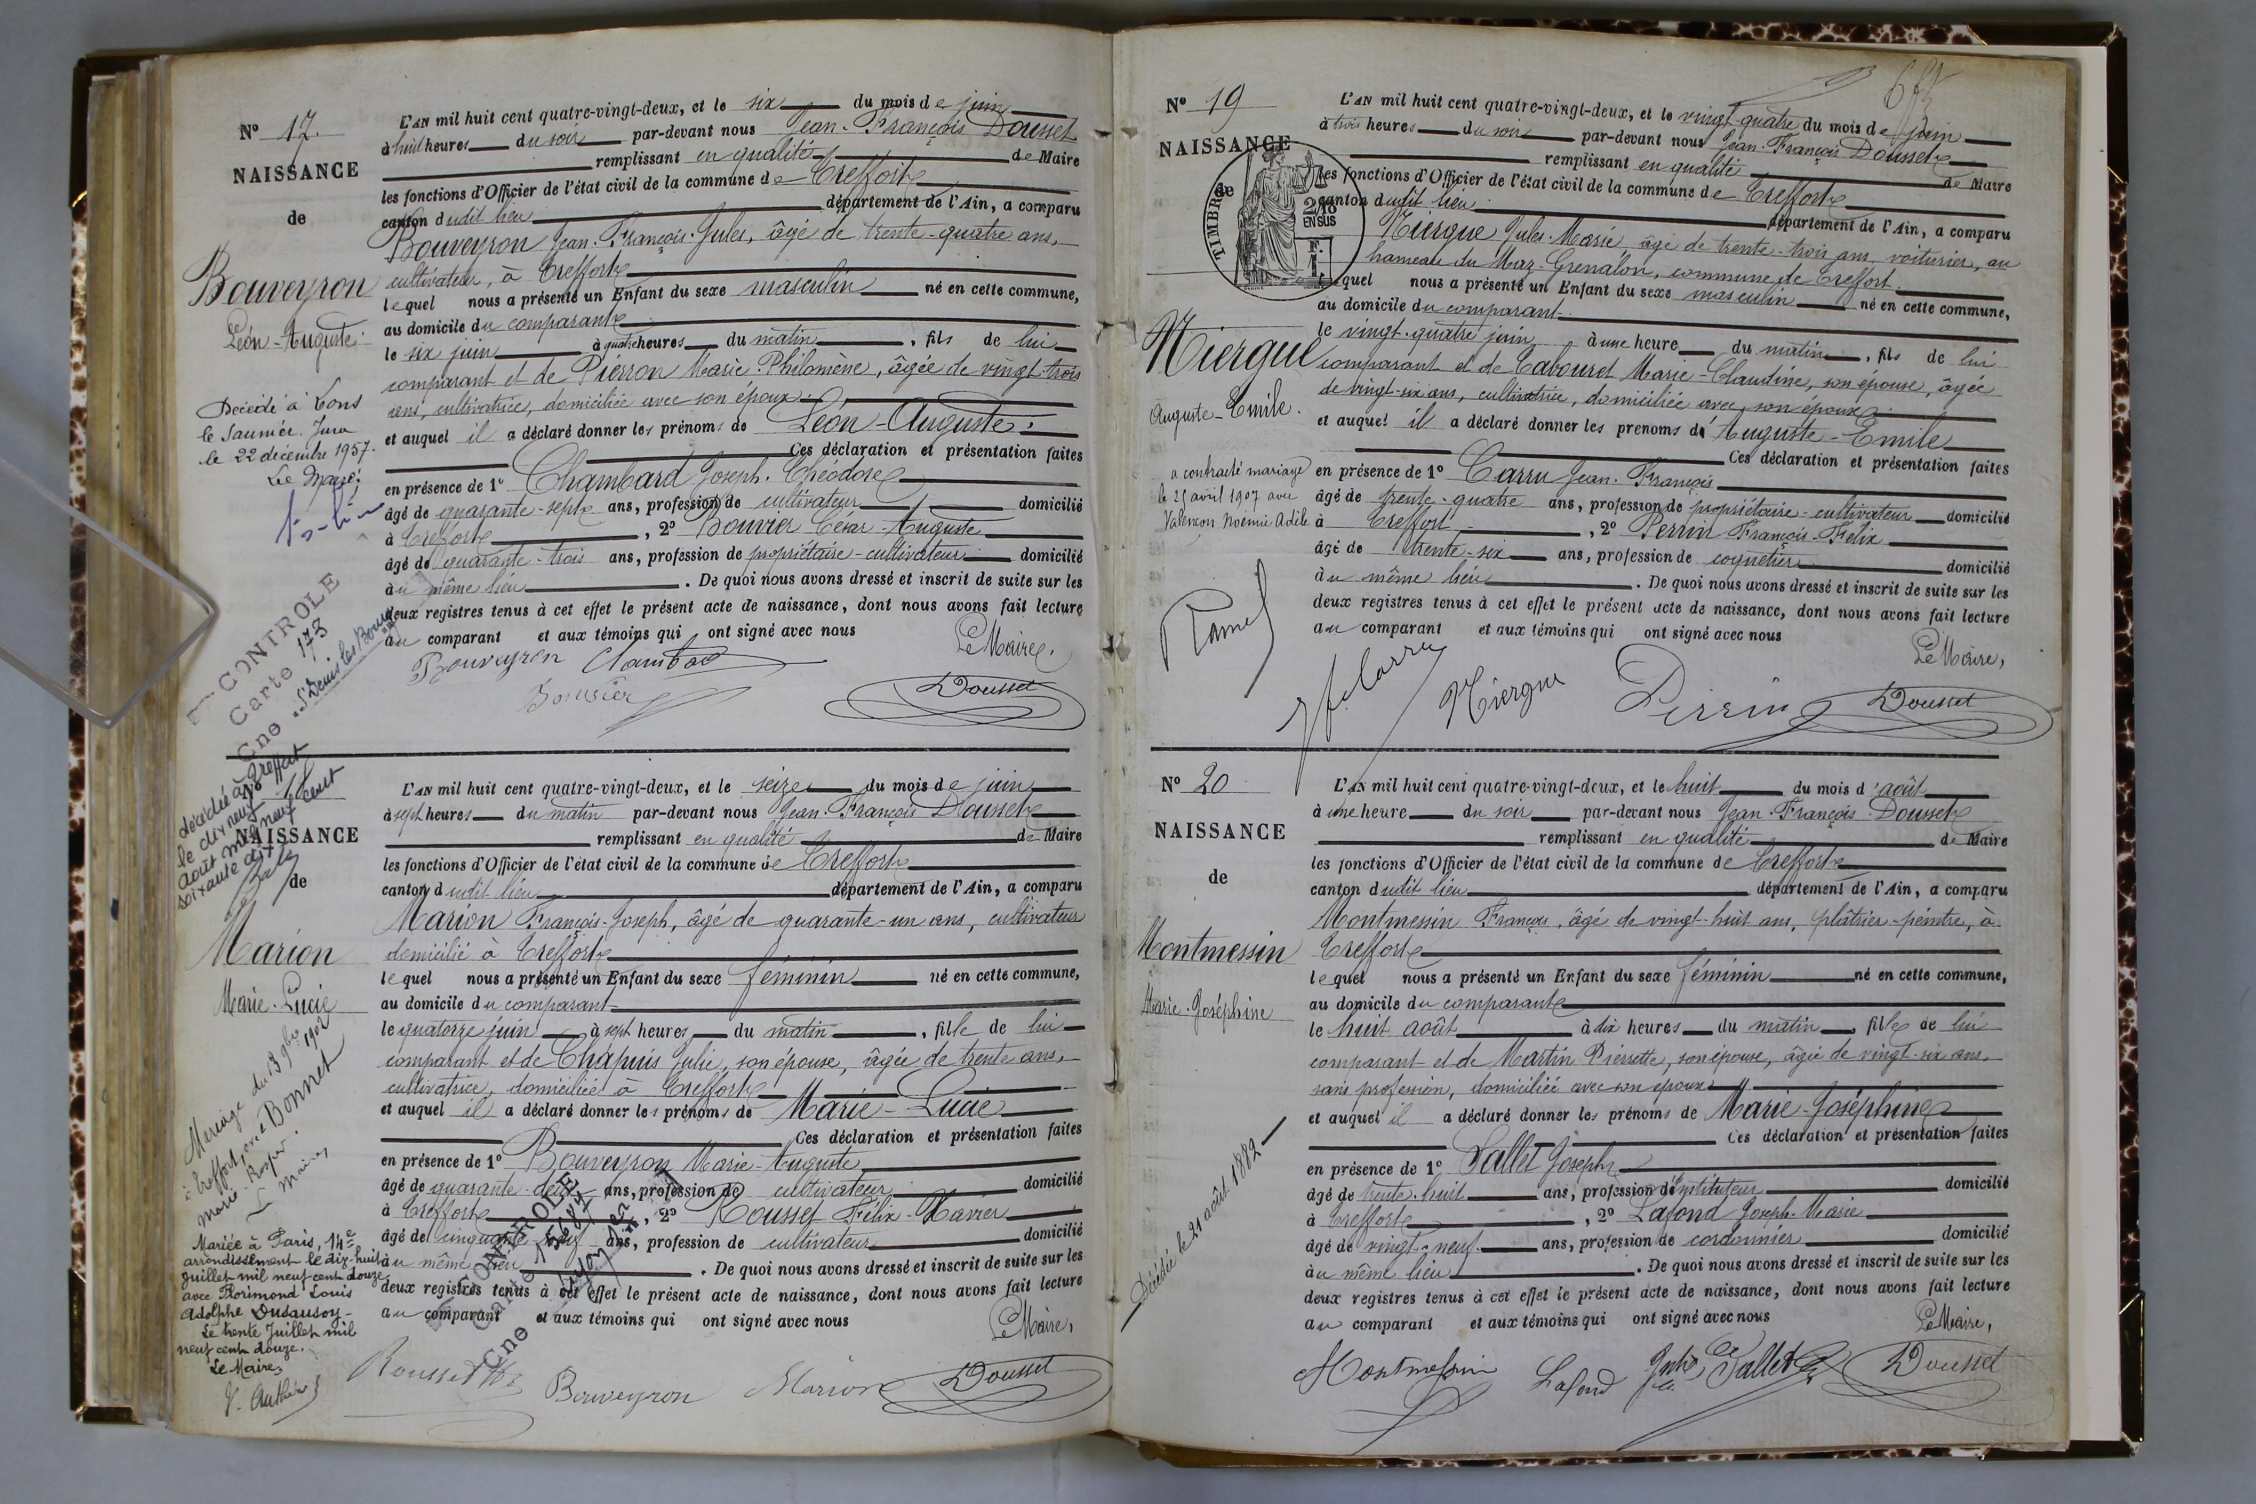 N° 17.
NAISSANCE
de
Bouveyron
Léon-Auguste
Décédé à Lons
le Saunier. Jura
le 22 décembre 1957.
Le Maire,
L'AN mil huit cent quatre-vingt-deux, et le six du mois de juin
à huit heures du soir par-devant nous Jean-François Dousset
remplissant en qualité de Maire
les fonctions d'Officier de l'état civil de la commune de Treffort
canton dudit lieu département de l'Ain, a comparu
Bouveyron Jean-François-Jules, âgé de trente-quatre ans,
cultivateur, à Treffort
lequel nous a présenté un Enfant du sexe masculin né en cette commune,
au domicile du comparant
le six juin à quatre heures du matin, fils de lui
comparant et de Pierron Marie-Philomène, âgée de vingt-trois
ans, cultivatrice, domiciliée avec son époux
et auquel il a déclaré donner les prénoms de Léon-Auguste.
Ces déclaration et présentation faites
en présence de 1° Chambard Joseph-Théodore
âgé de quarante-sept ans, profession de cultivateur domicilié
à Treffort, 2° Bouvier César-Auguste
âgé de quarante-trois ans, profession de propriétaire-cultivateur domicilié
au même lieu. De quoi nous avons dressé et inscrit de suite sur les
deux registres tenus à cet effet le présent acte de naissance, dont nous avons fait lecture
au comparant et aux témoins qui ont signé avec nous
Le Maire,
Bouveyron Chambard
Bouvier Dousset
CONTROLE
Carte 173
Cne St Denis les Bourg
N° 18
NAISSANCE
de
Marion
Marie-Lucie
décédée à Treffort
le dix neuf
août mil neuf cent
soixante dix
Mariage du 3 9bre 1902
à Treffort, avec Bonnet
Marie
Le Maire,
Mariée à Paris, 14e
arrondissement le dix-huit
juillet mil neuf cent douze
avec Florimond Louis
Adolphe Dusausoy-
Le trente Juillet mil
neuf cent douze.
Le Maire,
L'AN mil huit cent quatre-vingt-deux, et le seize du mois de juin
à sept heures du matin par-devant nous Jean-François Dousset
remplissant en qualité de Maire
les fonctions d'Officier de l'état civil de la commune de Treffort
canton dudit lieu département de l'Ain, a comparu
Marion François-Joseph, âgé de quarante-un ans, cultivateur
domicilié à Treffort
lequel nous a présenté un Enfant du sexe féminin né en cette commune,
au domicile du comparant
le quatorze juin à sept heures du matin, fille de lui
comparant et de Chapuis Julie, son épouse, âgée de trente ans,
cultivatrice, domiciliée à Treffort
et auquel il a déclaré donner les prénoms de Marie-Lucie
Ces déclaration et présentation faites
en présence de 1° Bouveyron Marie-Auguste
âgé de quarante-deux ans, profession de cultivateur domicilié
à Treffort, 2° Rousset Félix-Xavier
âgé de cinquante ans, profession de cultivateur domicilié
au même lieu. De quoi nous avons dressé et inscrit de suite sur les
deux registres tenus à cet effet le présent acte de naissance, dont nous avons fait lecture
au comparant et aux témoins qui ont signé avec nous
Le Maire,
CONTROLE
Carte
Cne Lyon
Rousset Bouveyron Marion Dousset
N° 19
NAISSANCE
de
TIMBRE
2/10
EN SUS
Niergue
Auguste-Emile.
a contracté mariage
le 25 avril 1907 avec
Valençon Noémie Adèle
Ramel
L'AN mil huit cent quatre-vingt-deux, et le vingt-quatre du mois de juin
à trois heures du soir par-devant nous Jean-François Dousset
remplissant en qualité de Maire
les fonctions d'Officier de l'état civil de la commune de Treffort
canton dudit lieu département de l'Ain, a comparu
Niergue Jules-Marie, âgé de trente-trois ans, voiturier, au
hameau du Maz-Grenalon, commune de Treffort.
lequel nous a présenté un Enfant du sexe masculin né en cette commune,
au domicile du comparant.
le vingt-quatre juin à une heure du matin, fils de lui
comparant et de Tabouret Marie-Claudine, son épouse, âgée
de vingt-six ans, cultivatrice, domiciliée avec son époux
et auquel il a déclaré donner les prénoms d'Auguste-Emile
Ces déclaration et présentation faites
en présence de 1° Carru Jean-François
âgé de trente-quatre ans, profession de propriétaire-cultivateur domicilié
à Treffort, 2° Perrin François-Félix
âgé de trente-six ans, profession de coquetier domicilié
au même lieu. De quoi nous avons dressé et inscrit de suite sur les
deux registres tenus à cet effet le présent acte de naissance, dont nous avons fait lecture
au comparant et aux témoins qui ont signé avec nous
Le Maire,
Jf Carru Niergue Perrin Dousset
N° 20
NAISSANCE
de
Montmessin
Marie-Joséphine
Décédée le 21 août 1882
L'AN mil huit cent quatre-vingt-deux, et le huit du mois d'août
à une heure du soir par-devant nous Jean-François Dousset
remplissant en qualité de Maire
les fonctions d'Officier de l'état civil de la commune de Treffort
canton dudit lieu département de l'Ain, a comparu
Montmessin François, âgé de vingt-huit ans, plâtrier-peintre, à
Treffort
lequel nous a présenté un Enfant du sexe féminin né en cette commune,
au domicile du comparant
le huit août à dix heures du matin, fille de lui
comparant et de Martin Pierrette, son épouse, âgée de vingt-six ans,
sans profession, domiciliée avec son époux
et auquel il a déclaré donner les prénoms de Marie-Joséphine
Ces déclaration et présentation faites
en présence de 1° Sallet Joseph
âgé de trente-huit ans, profession d'Instituteur domicilié
à Treffort, 2° Lafond Joseph-Marie
âgé de vingt-neuf ans, profession de cordonnier domicilié
au même lieu. De quoi nous avons dressé et inscrit de suite sur les
deux registres tenus à cet effet le présent acte de naissance, dont nous avons fait lecture
au comparant et aux témoins qui ont signé avec nous
Le Maire,
Montmessin Lafond Sallet Dousset